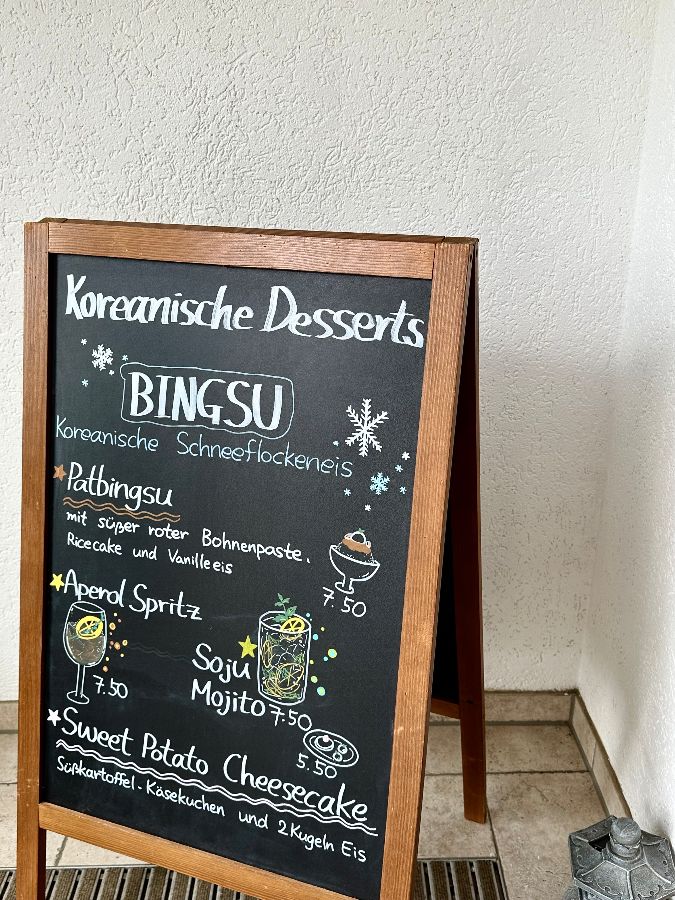 Koreanische Desserts
BINGSU
Koreanische Schneeflockeneis
Patbingsu
mit süßer roter Bohnenpaste.
Ricecake und Vanilleeis
7.50
Aperol Spritz
7.50
Soju
Mojito 7.50
5.50
Sweet Potato Cheesecake
Süßkartoffel-Käsekuchen und 2 Kugeln Eis